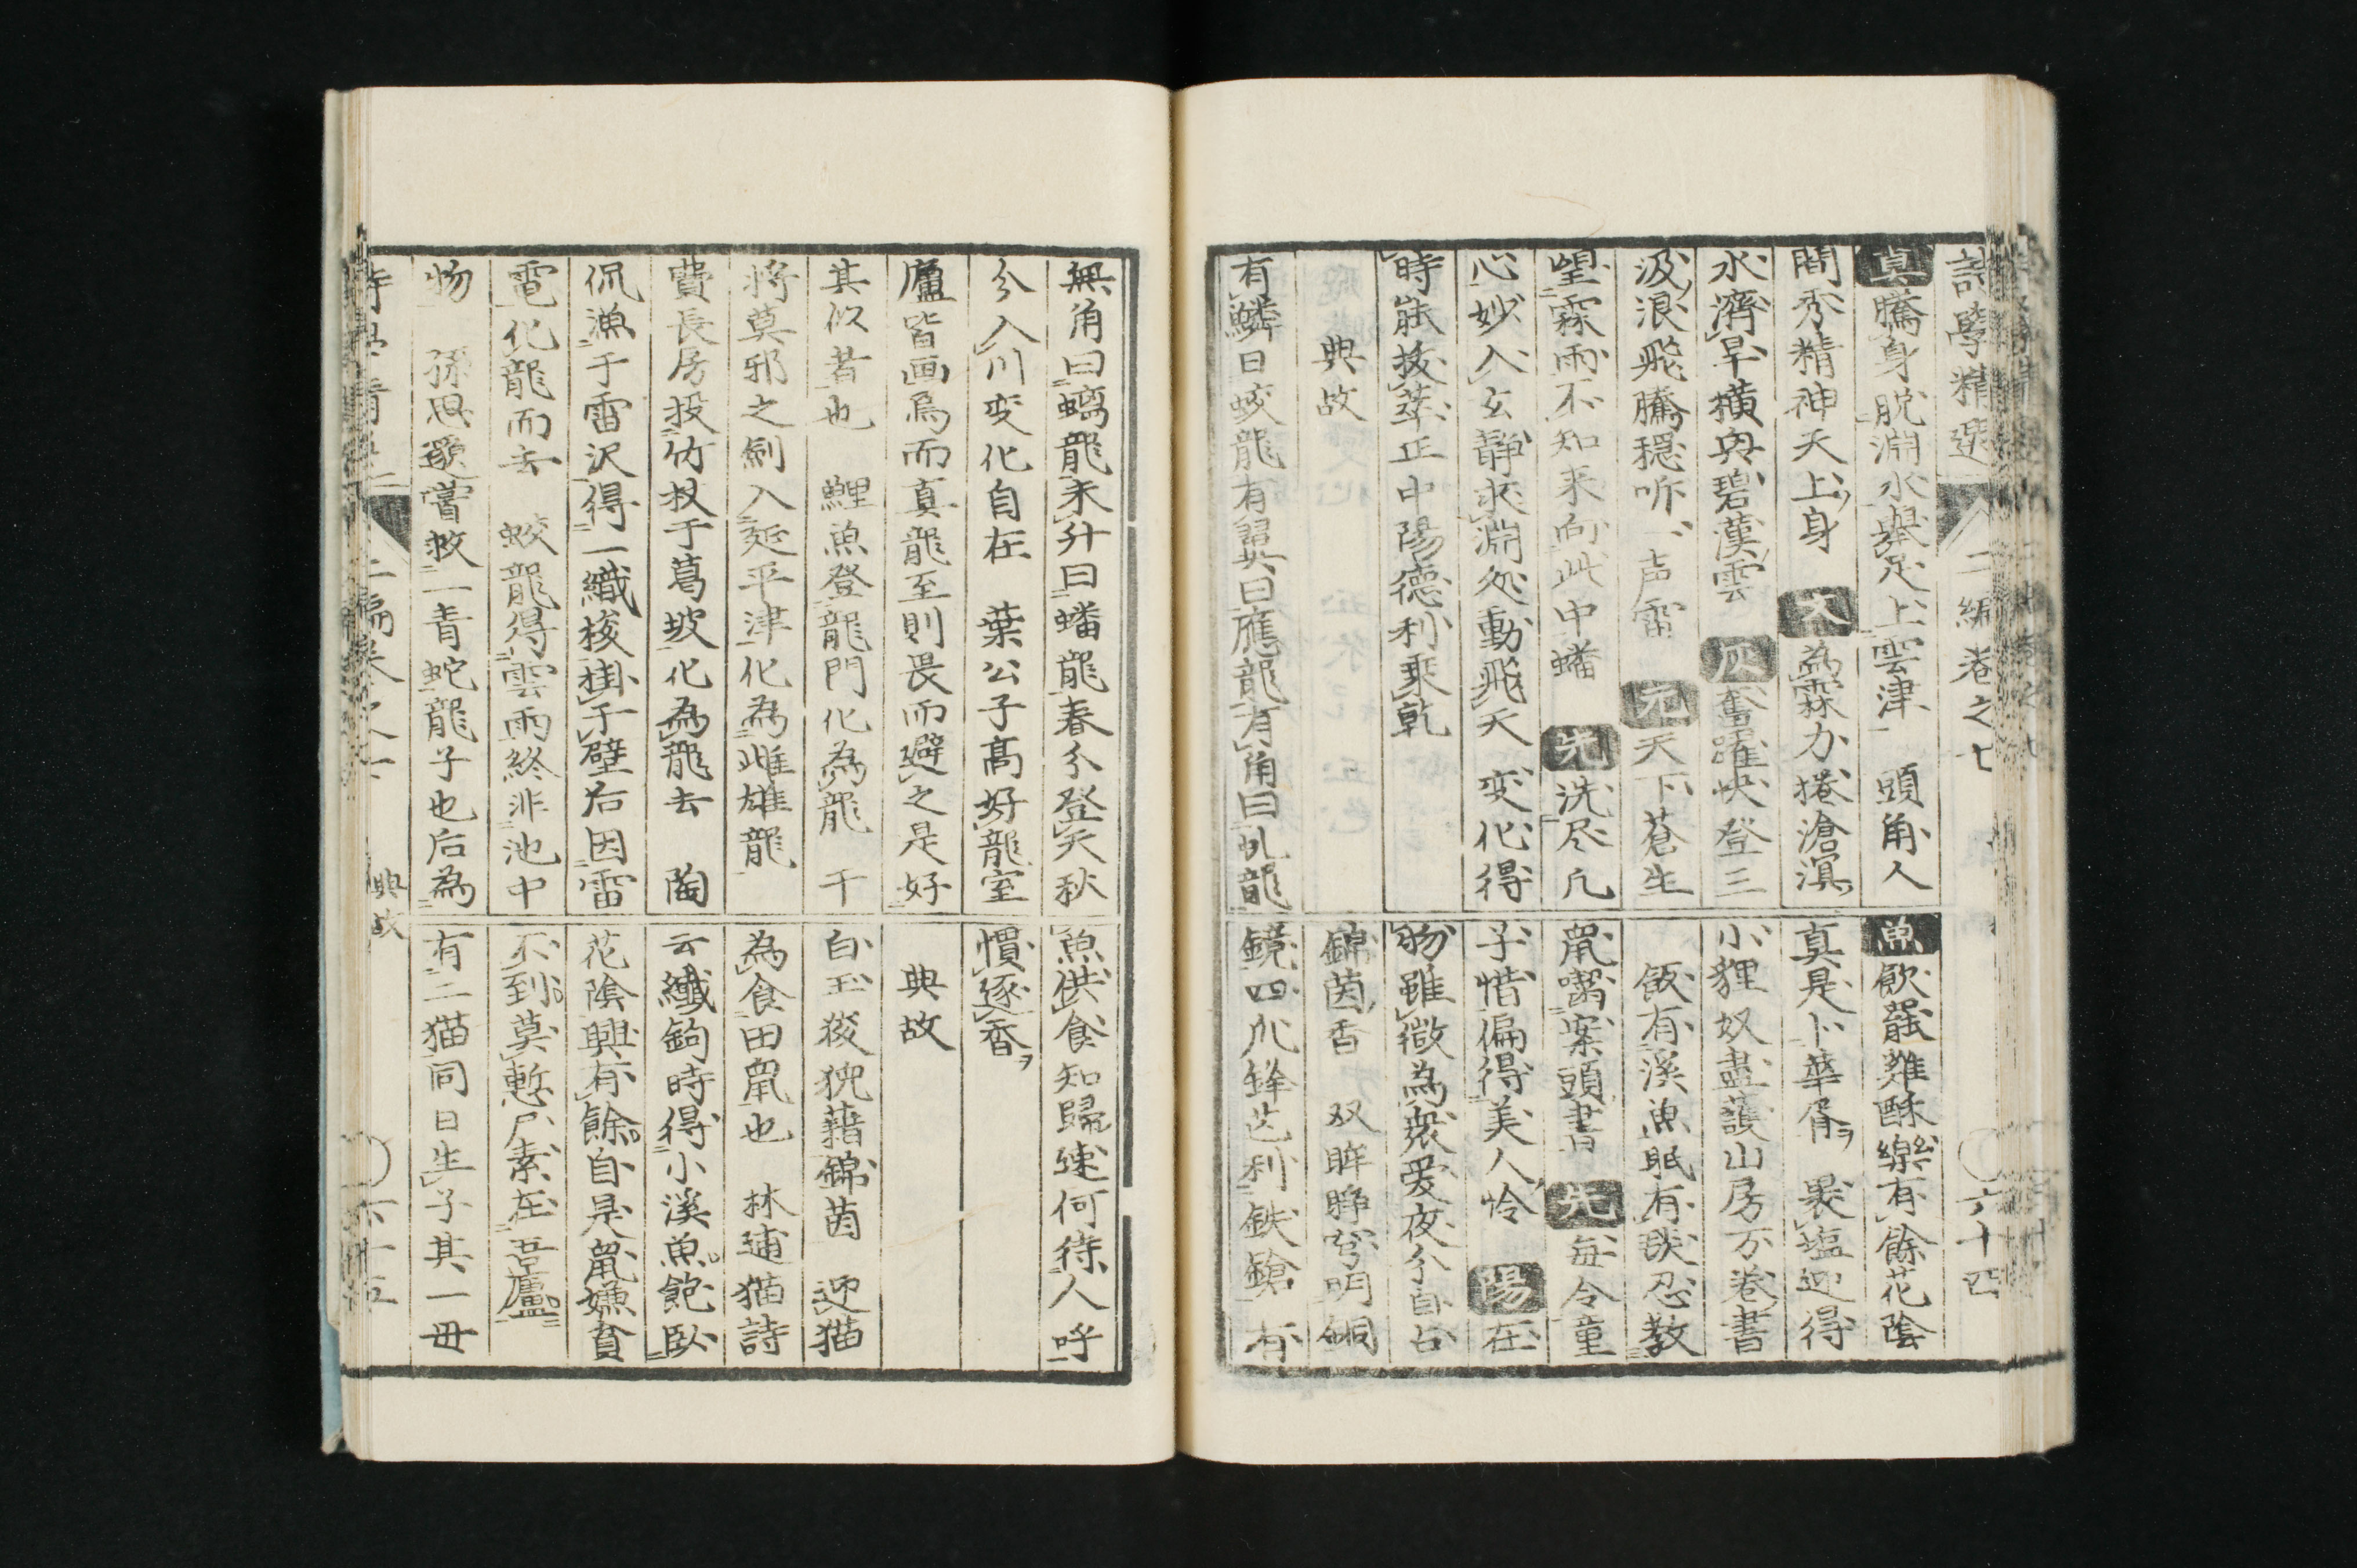 詩學精選 二編巻之七 六十四
真騰身脱淵水舉足上雲津 頭角人
間秀精神天上身 文為霖力捲滄溟
水濟旱横與碧漢雲 灰奮躍快登三
汲浪飛騰穏听一声雷 元天下蒼生
望霖雨不知来向此中蟠 先洗尽凡
心妙入玄靜来淵処動飛天 変化得
時能抜萃正中陽德利乘乾
典故
有鱗曰蛟龍有翼曰應龍有角曰虬龍
魚飲罷難酥樂有餘花陰
真是卜華胥 裹塩迎得
小狸奴盡護山房万巻書
飯有溪魚眠有毯忍教
鼠嚙案頭書 先每令童
子惜偏得美人怜 陽在
物雖微為衆愛夜分自占
錦茵香 双眸睁兮明銅
鏡四爪鋒芒利鉄鎗 有
無角曰螭龍未升曰蟠龍春分登天秋
分入川変化自在 葉公子高好龍室
廬皆画焉而真龍至則畏而避之是好
其似者也 鯉魚登龍門化為龍 干
将莫邪之剣入延平津化為雌雄龍
費長房投竹杖于葛坡化為龍去 陶
侃漁于雷沢得一織梭掛于壁后因雷
電化龍而去 蛟龍得雲雨終非池中
物 孫思邈嘗救一青蛇龍子也后為
魚供食知歸速何待人呼
慣逐香
典故
白玉狻猊藉錦茵 迎猫
為食田鼠也 林逋猫詩
云纖鉤時得小溪魚飽臥
花陰興有餘自是鼠嫌貧
不到莫慙尸素在吾廬
有二猫同日生子其一毋
二編巻之七 典故 六十五